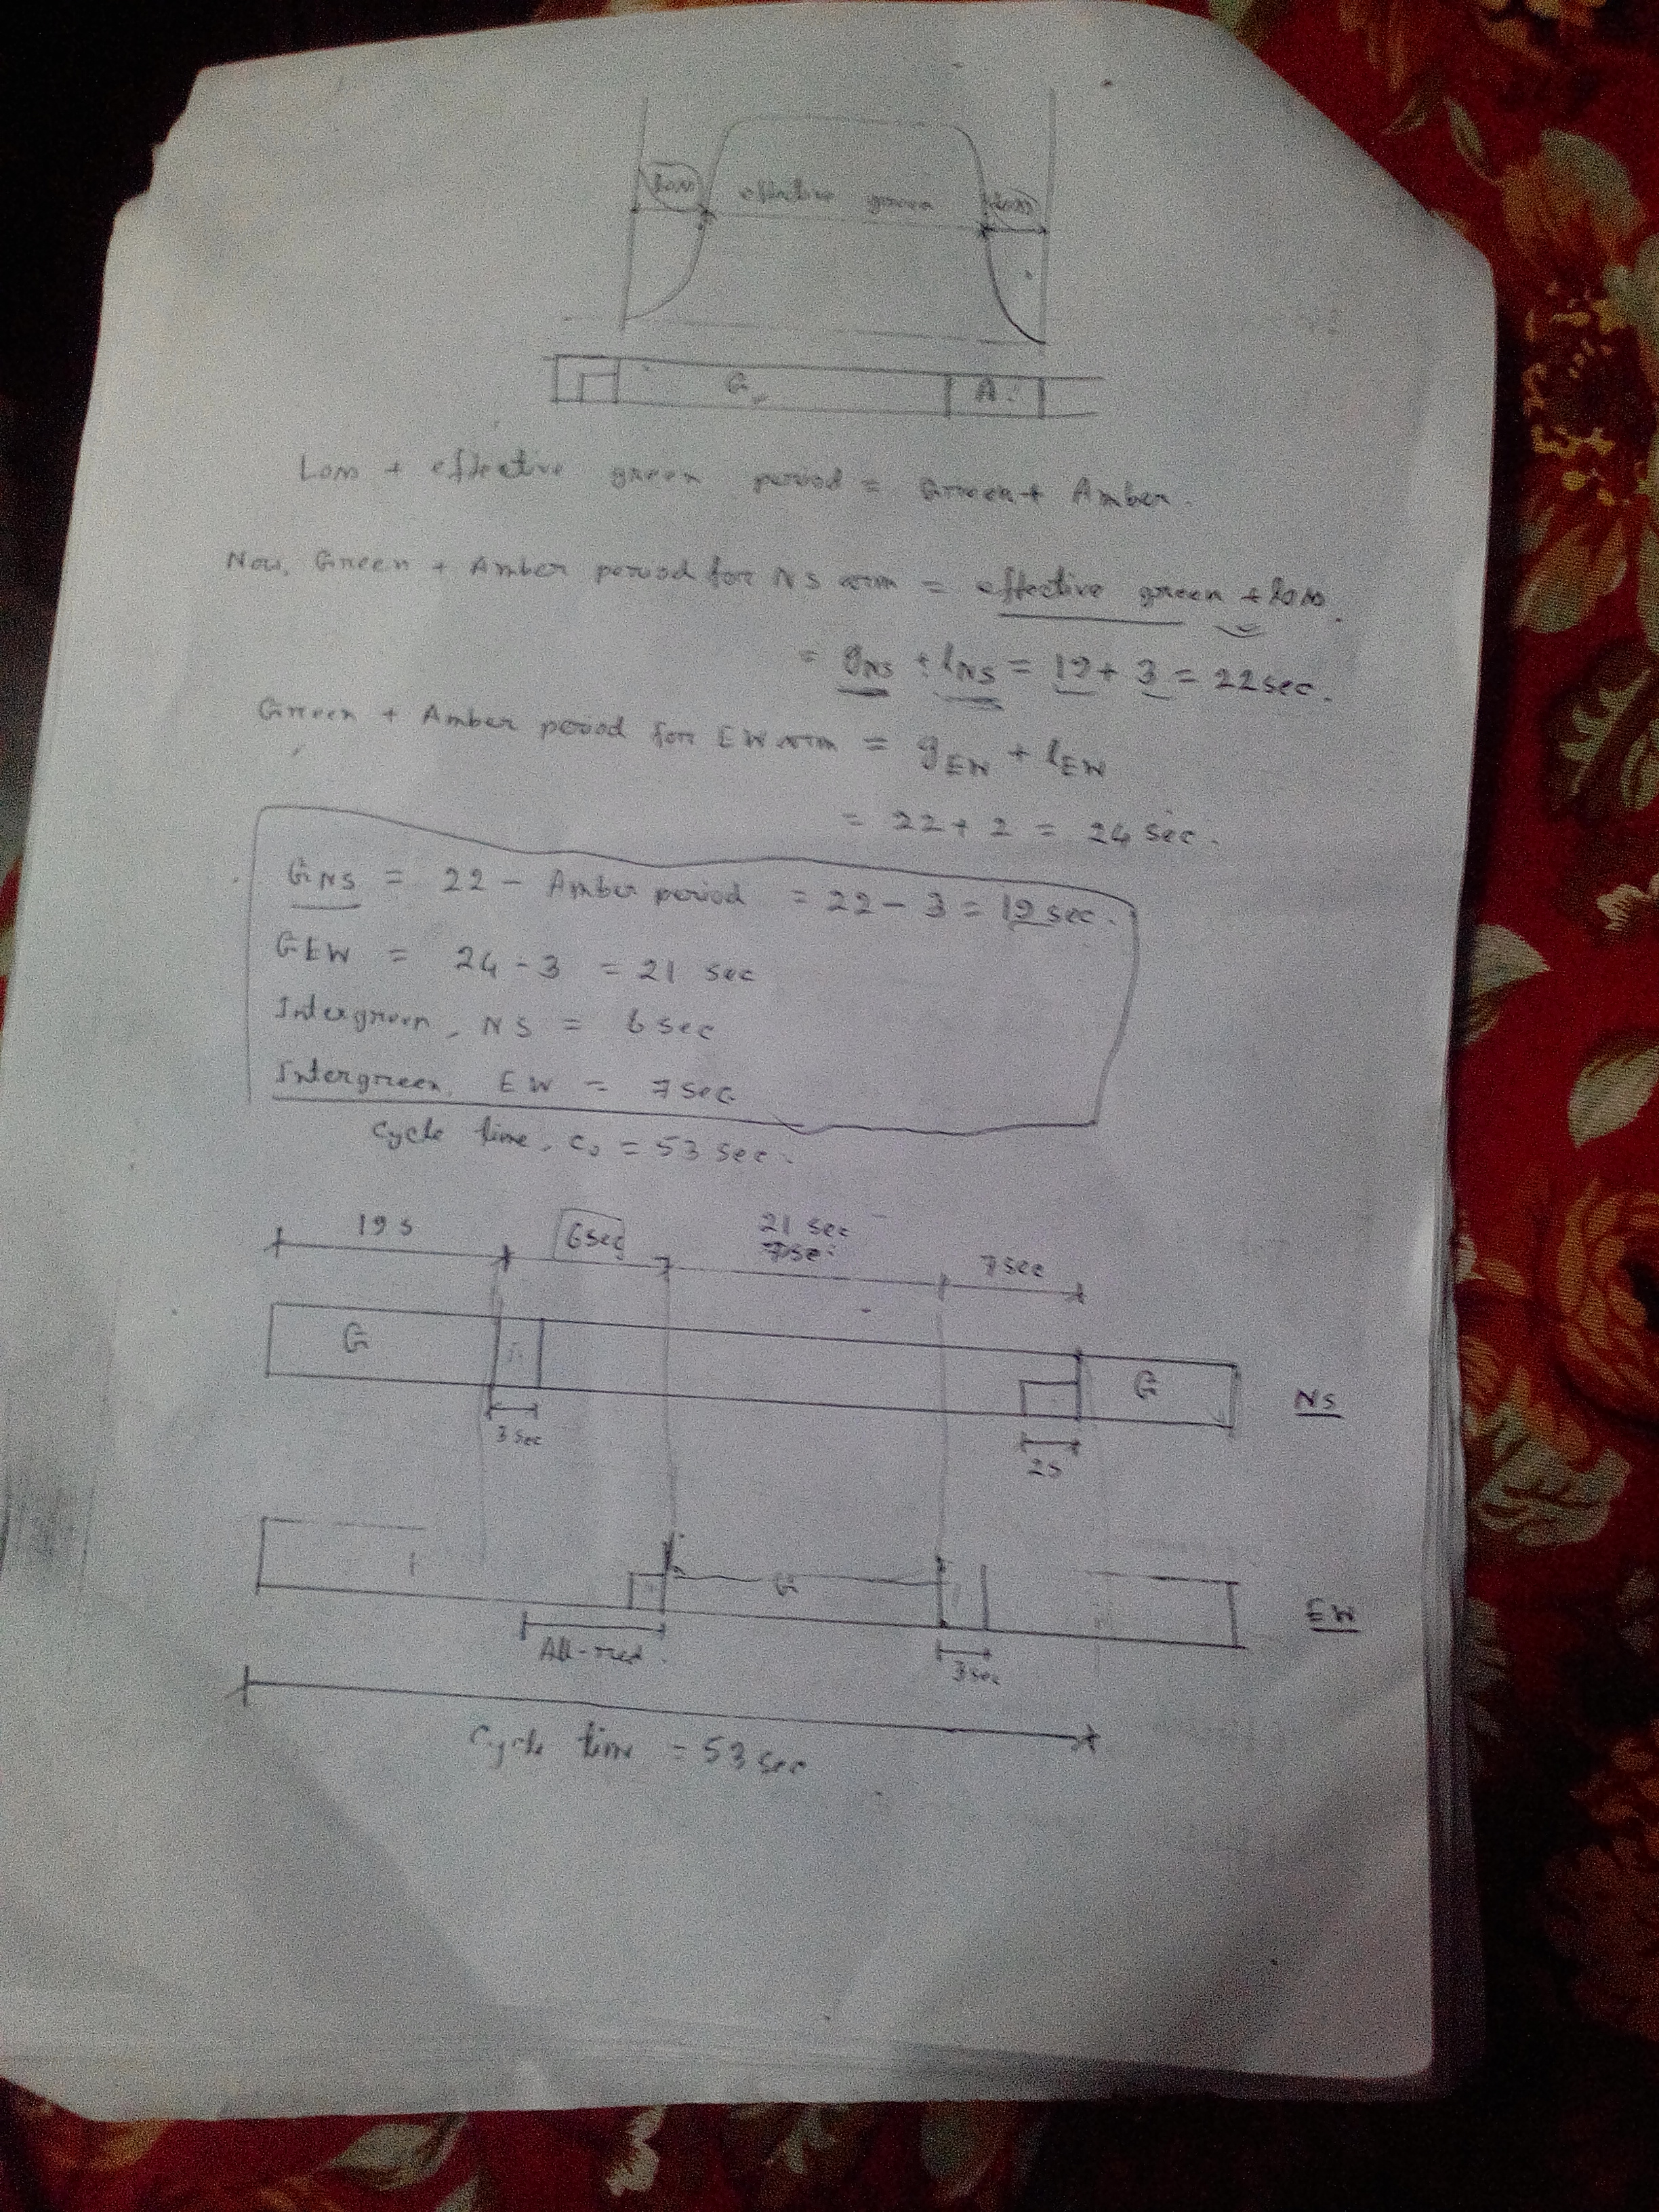 Loss effective green Loss
G A
Loss + effective green period = Green + Amber.
Now, Green + Amber period for NS arm = effective green + loss.
= gNS + lNS = 19 + 3 = 22 sec.
Green + Amber period for EW arm = gEW + lEW
= 22 + 2 = 24 sec.
GNS = 22 - Amber period = 22 - 3 = 19 sec.
GEW = 24 - 3 = 21 sec
Intergreen, NS = 6 sec
Intergreen, EW = 7 sec
Cycle time, c0 = 53 sec.
19 s 6 sec 21 sec 7 sec
7 sec
G G NS
3 sec 2 s
G EW
All-red. 3 sec
Cycle time = 53 sec